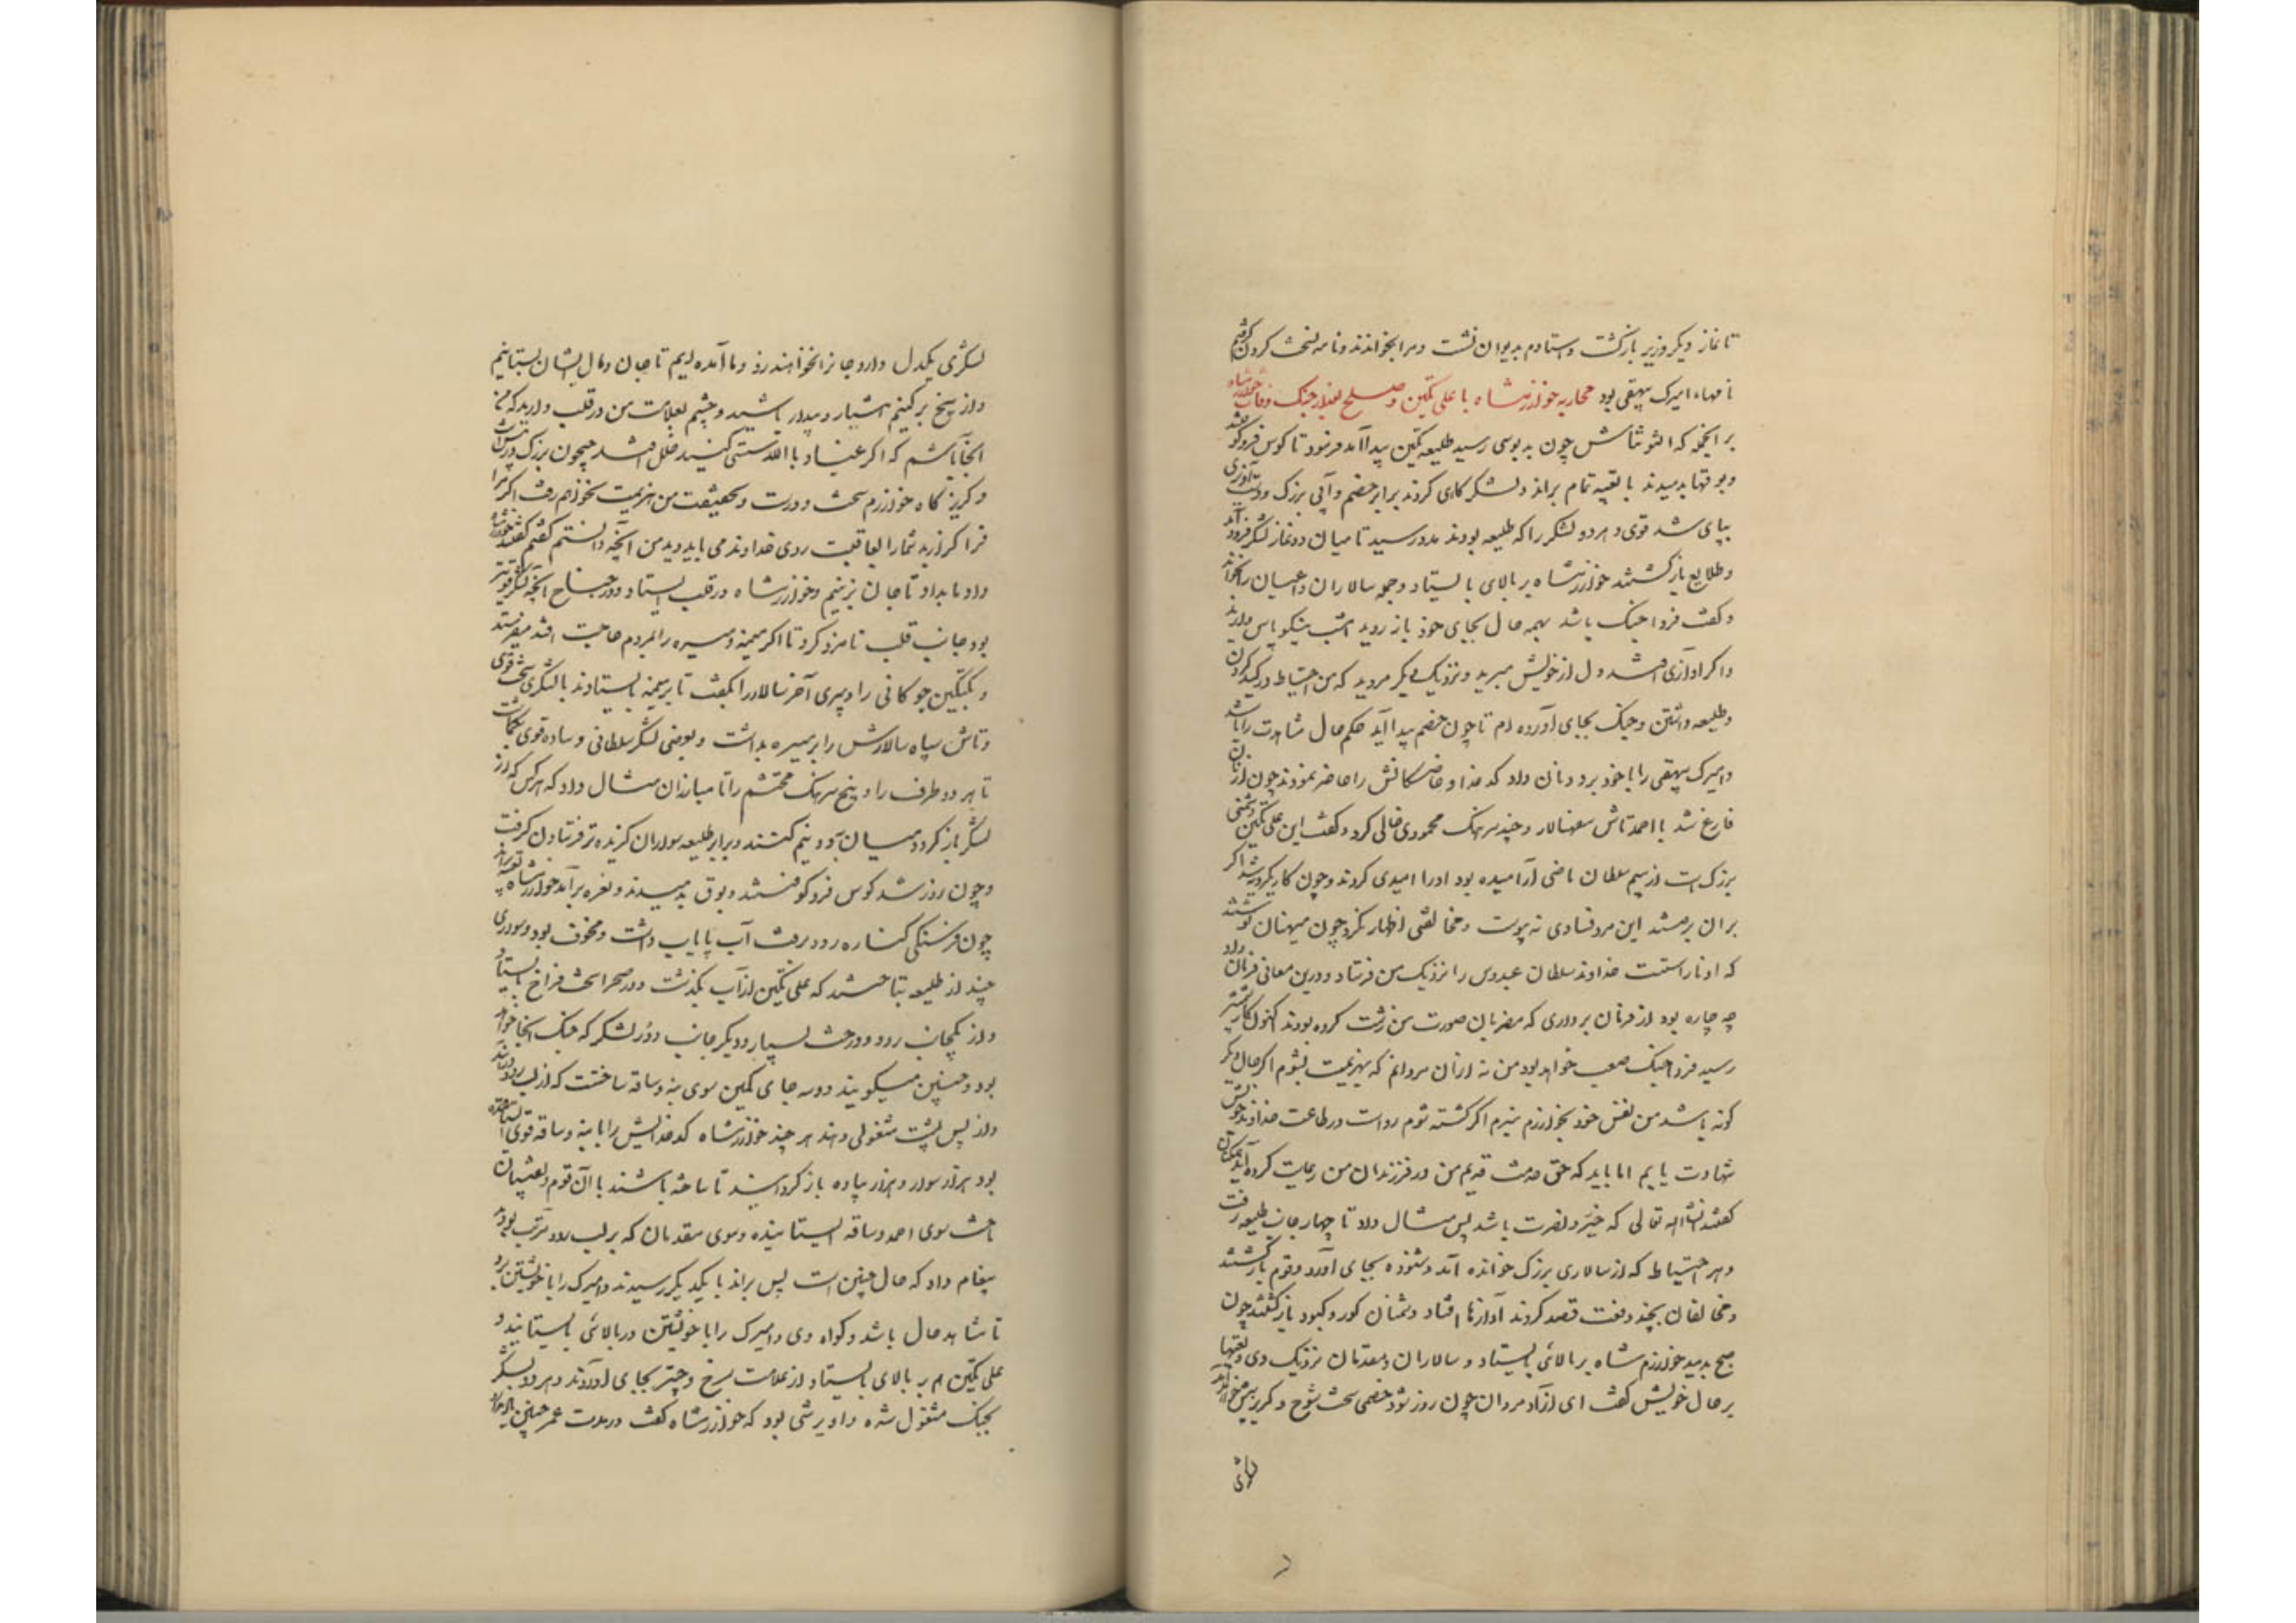 تا نماز دیکر وزیر بازکشت و استادم بدیوان نشست و مرا بخواندند و نامه نسخت کردن کرفتم
نامهاء امیرک بیهقی بود محاربه خوارزمشاه با علی تکین و صلح بعد از جنک و فات خوارزمشاه
بر انجمله که التونتاش چون به بوسی رسید طلیعه تکین پیدا آمد فرمود تا کوس فرو کوفتند
و بوقها بدمیدند با تعبیه تمام براند و لشکرکاهی کردند برابر خصم و آبی بزرک و دست آویزی
بپای شد قوی و هر دو لشکر را که طلیعه بودند مدد رسید تا میان دو نماز لشکر فرود آمد
و طلایع بازکشتند خوارزمشاه بر بالای بایستاد و جمله سالاران و اعیان را بخواند
و کفت فردا جنک باشد بهمه حال بجای خود باز روید امشب نیکو پاس دارید
و اکر آوازی افتد دل از خویش مبرید و نزدیک یکدیکر مروید که من احتیاط در کید کردن
و طلیعه داشتن و جنک بجای آورده ام تا چون خصم پیدا آید حکم حال مشاهدت را باشد
و امیرک بیهقی را با خود برد و نان داد کدخدا و خاصکانش را حاضر نمودند چون از نان
فارغ شد با احمد تاش سپهسالار و چند سرهنک محمودی خالی کرد و کفت این علی تکین دشمنی
بزرک است از بیم سلطان ماضی آرامیده بود او را امیدی کردند و چون کار یکرویه شد اکر
بران برمتند این مرد فسادی نه پیوست و مخالفتی اظهار نکرد چون منهیان نوشتند
که او نا راستست خداوند سلطان عبدوس را نزدیک من فرستاد و درین معانی فرمان داد
چه چاره بود از فرمان برداری که مضربان صورت من زشت کرده بودند اکنون کار بشمشیر
رسید فردا جنک صعب خواهد بود من نه ازان مردانم که بهزیمت بشوم اکر حال دیکر
کونه باشد من نفس خود بخوارزم نبرم اکر کشته شوم رواست در طاعت خداوند خویش
شهادت یابم اما باید که حق خدمت قدیم من در فرزندان من رعایت کرده آید همکنان
کفتند انشاالله تعالی که خیر و نصرت باشد پس مثال داد تا چهار جانب طلیعه رفت
و هر احتیاط که از سالاری بزرک خوانده آند و شنوده بجای آورد و قوم بازکشتند
و مخالفان بچند دفعت قصد کردند آوازها افتاد دشمنان کور و کبود بازکشتند چون
صبح بدمید خوارزم شاه بر بالائی بایستاد و سالاران و مقدمان نزدیک وی و تعبیها
بر حال خویش کفت ای آزاد مردان چون روز شود خصمی سخت شوخ و کربز پیش خواهد آمد
لشکری
لشکری یکدل دارد و جانرا بخواهند زد و ما آمده ایم تا جان و مال ایشان بستانیم
و از بیخ برکنیم هشیار و بیدار باشید و چشم بعلامت من در قلب دارید که من
آنجا باشم که اکر عیاذ بالله سستی کنید خلل افتد جیحون بزرک در پس است
و کریزکاه خوارزم سخت دورست و بحقیقت من بهزیمت نخواهم رفت اکر مرا
فرا کذارید شما را بعاقبت روی خداوند می باید دید من آنچه دانستم کفتم کفتند خوارزمشاه
داد ما بداد تا جان بزنیم و خوارزمشاه در قلب ایستاد و در جناح آنچه لشکر قویتر
بود جانب قلب نامزد کرد تا اکر میمنه و میسره را بمردم حاجت افتد میفرستد
و بکتکین چوکانی را و پیری آخر سالار را بکفت تا بر میمنه بایستادند با لشکری سخت قوی
و تاش سپاه سالارش را بر میسره بداشت و بعضی لشکر سلطانی و ساقه قوی بکماشت
تا هر دو طرف را و پنج سرهنک محتشم را با مبارزان مثال داد که هر کس که از
لشکر باز کردد میان به دو نیم کنند و برابر طلیعه سواران کزیده تر فرستادن کرفت
و چون روز شد کوس فرو کوفتند و بوق بدمیدند و نعره برآمد خوارزمشاه تعبیه براند
چون فرسنکی کناره رود برفت آب پایاب داشت و مخوف بود و سواری
چند از طلیعه بتاختند که علی تکین از آب بکذشت و در صحرا سخت فراخ بایستاد
و از یکجانب رود و درخت بسیار و دیکر جانب دور لشکر که جنک آنجا خواهد
بود و چنین میکویند دو سه جای کمین سوی بنه و ساقه ساختست که از لب رود درآیند
و از پس پشت مشغولی دهند هر چند خوارزمشاه کدخدایش را با بنه و ساقه قوی ایستانیده
بود هزار سوار و هزار پیاده باز کردانید تا ساخته باشند با آن قوم و نقیبان
تاخت سوی احمد و ساقه ایستانیده و سوی مقدمان که بر لب رود مرتب بودند
پیغام داد که حال چنین است پس براند با یکدیکر رسیدند و امیرک را با خویشتن برد
تا شاهد حال باشد و کواه وی و امیرک را با خویشتن در بالائی بایستانید و
علی تکین هم بر بالای بایستاد از علامت سرخ و چتر بجای آوردند و هر دو لشکر
بجنک مشغول شده داویرشی بود که خوارزمشاه کفت در مدت عمر چنین یاد ندارد